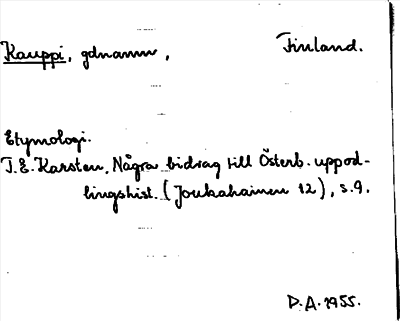 Kauppi, gdnamn, Finland.
Etymologi.
T.E. Karsten, Några bidrag till Österb. uppod-
lingshist. (Joukahainen 12), s.9.
D.A. 1955.